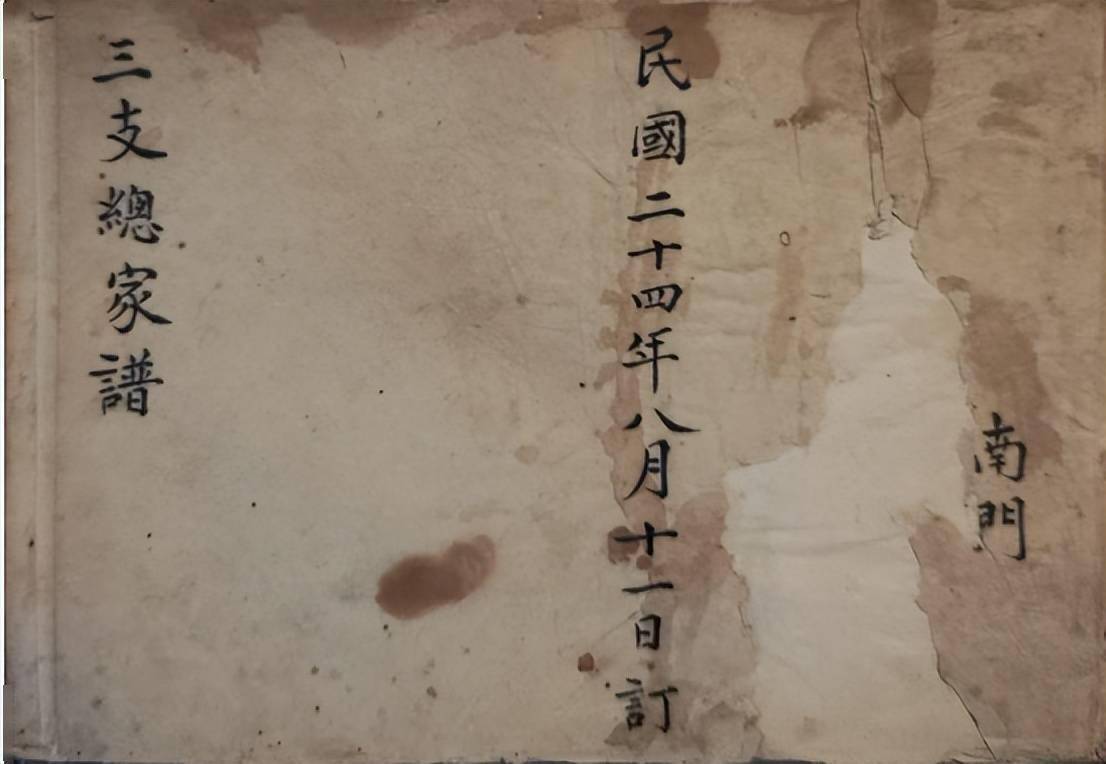 南門
民國二十四年八月十一日訂
三支總家譜